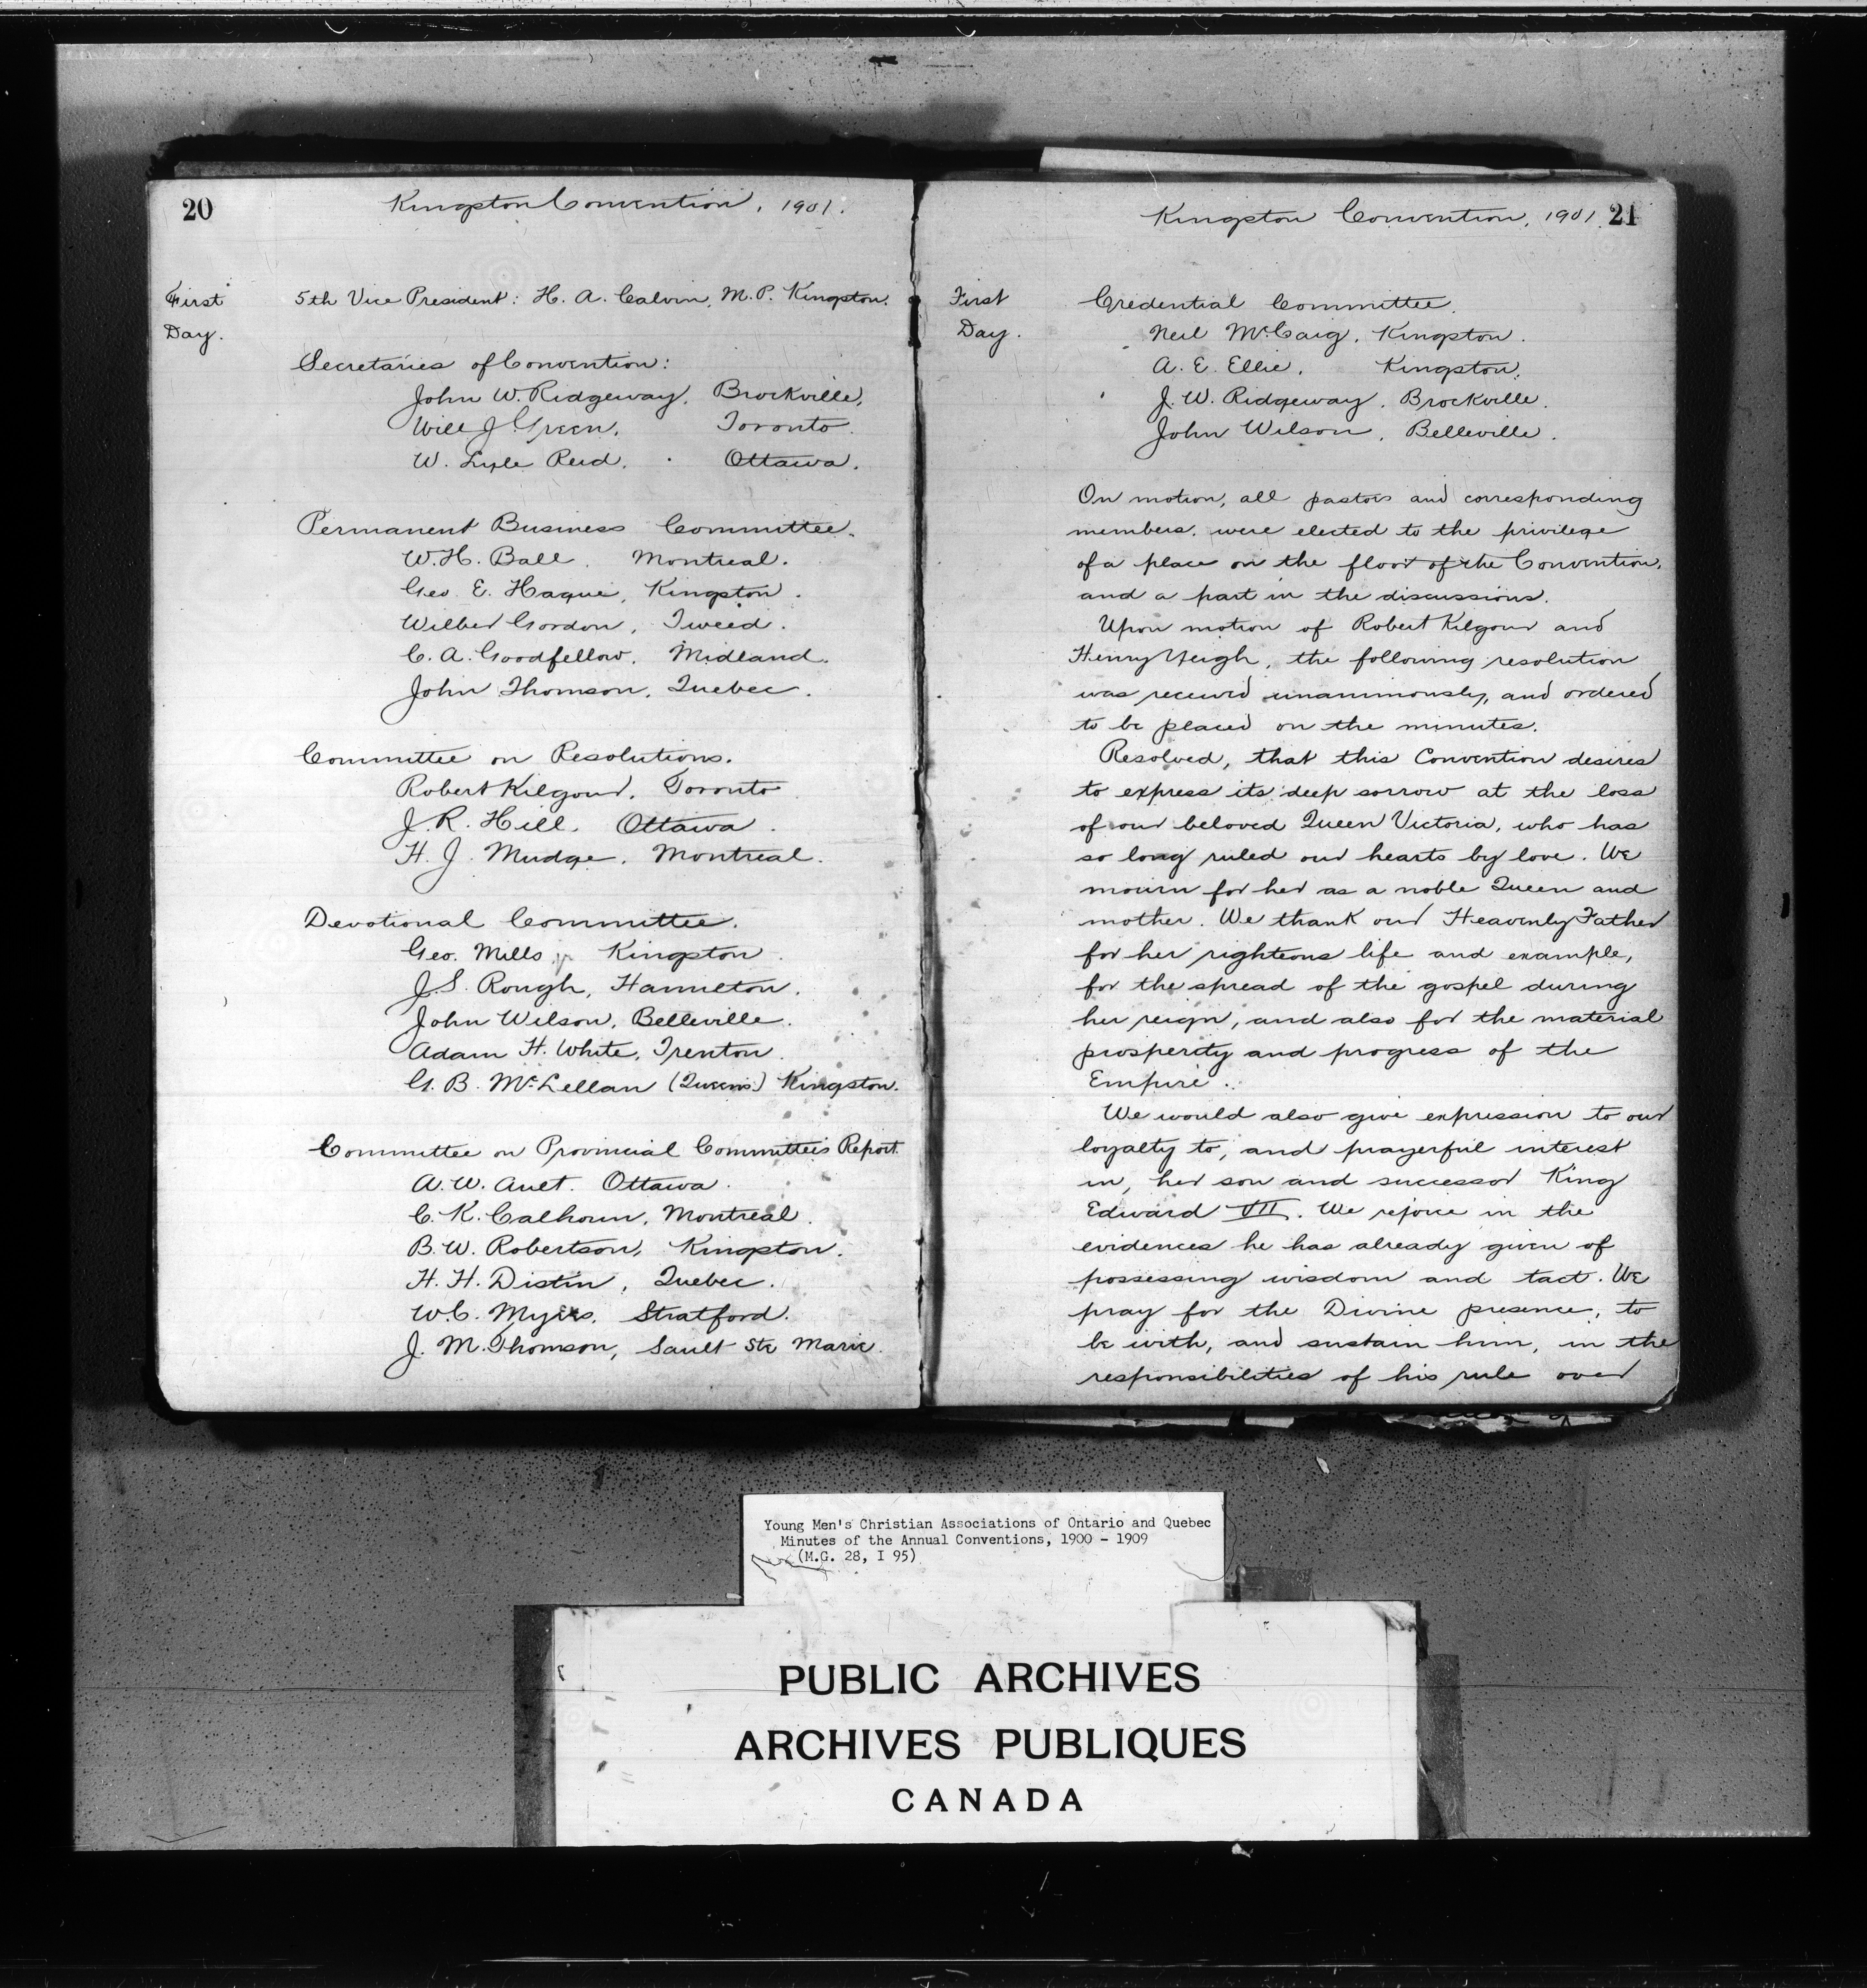 20
Kingston Convention, 1901.
First
Day.
5th Vice President: H. A. Calvin, M.P. Kingston.
Secretaries of Convention:
John W. Ridgeway, Brockville,
Will J. Green, Toronto.
W. Lyle Reid. Ottawa.
Permanent Business Committee.
W. H. Ball. Montreal.
Geo. E. Hague, Kingston.
Wilber Gordon, Tweed.
C. A. Goodfellow, Midland.
John Thomson, Quebec.
Committee on Resolutions.
Robert Kilgour, Toronto
J. R. Hill, Ottawa.
H. J. Mudge, Montreal.
Devotional Committee.
Geo. Mills jr Kingston
J. S. Rough, Hamilton.
John Wilson, Belleville.
Adam H. White, Trenton.
G. B. McLellan (Queens) Kingston.
Committee on Provincial Committee's Report.
A. W. Ault. Ottawa.
C. K. Calhoun, Montreal.
B. W. Robertson, Kingston.
H. H. Distin, Quebec.
W. C. Myers, Stratford.
J. M. Thomson, Sault Ste Marie.
Kingston Convention, 1901. 21
First
Day.
Credential Committee.
Neil McCaig, Kingston.
A. E. Ellie, Kingston.
J. W. Ridgeway, Brockville.
John Wilson, Belleville.
On motion, all pastors and corresponding
members, were elected to the privilege
of a place on the floor of the Convention,
and a part in the discussions.
Upon motion of Robert Kilgour and
Henry Yeigh, the following resolution
was received unanimously, and ordered
to be placed on the minutes.
Resolved, that this Convention desires
to express its deep sorrow at the loss
of our beloved Queen Victoria, who has
so long ruled our hearts by love. We
mourn for her as a noble Queen and
mother. We thank our Heavenly Father
for her righteous life and example,
for the spread of the gospel during
her reign, and also for the material
prosperity and progress of the
Empire.
We would also give expression to our
loyalty to, and prayerful interest
in, her son and successor King
Edward VII. We rejoice in the
evidences he has already given of
possessing wisdom and tact. We
pray for the Divine presence, to
be with, and sustain him, in the
responsibilities of his rule over
Young Men's Christian Associations of Ontario and Quebec
Minutes of the Annual Conventions, 1900 - 1909
(M.G. 28, I 95)
PUBLIC ARCHIVES
ARCHIVES PUBLIQUES
CANADA